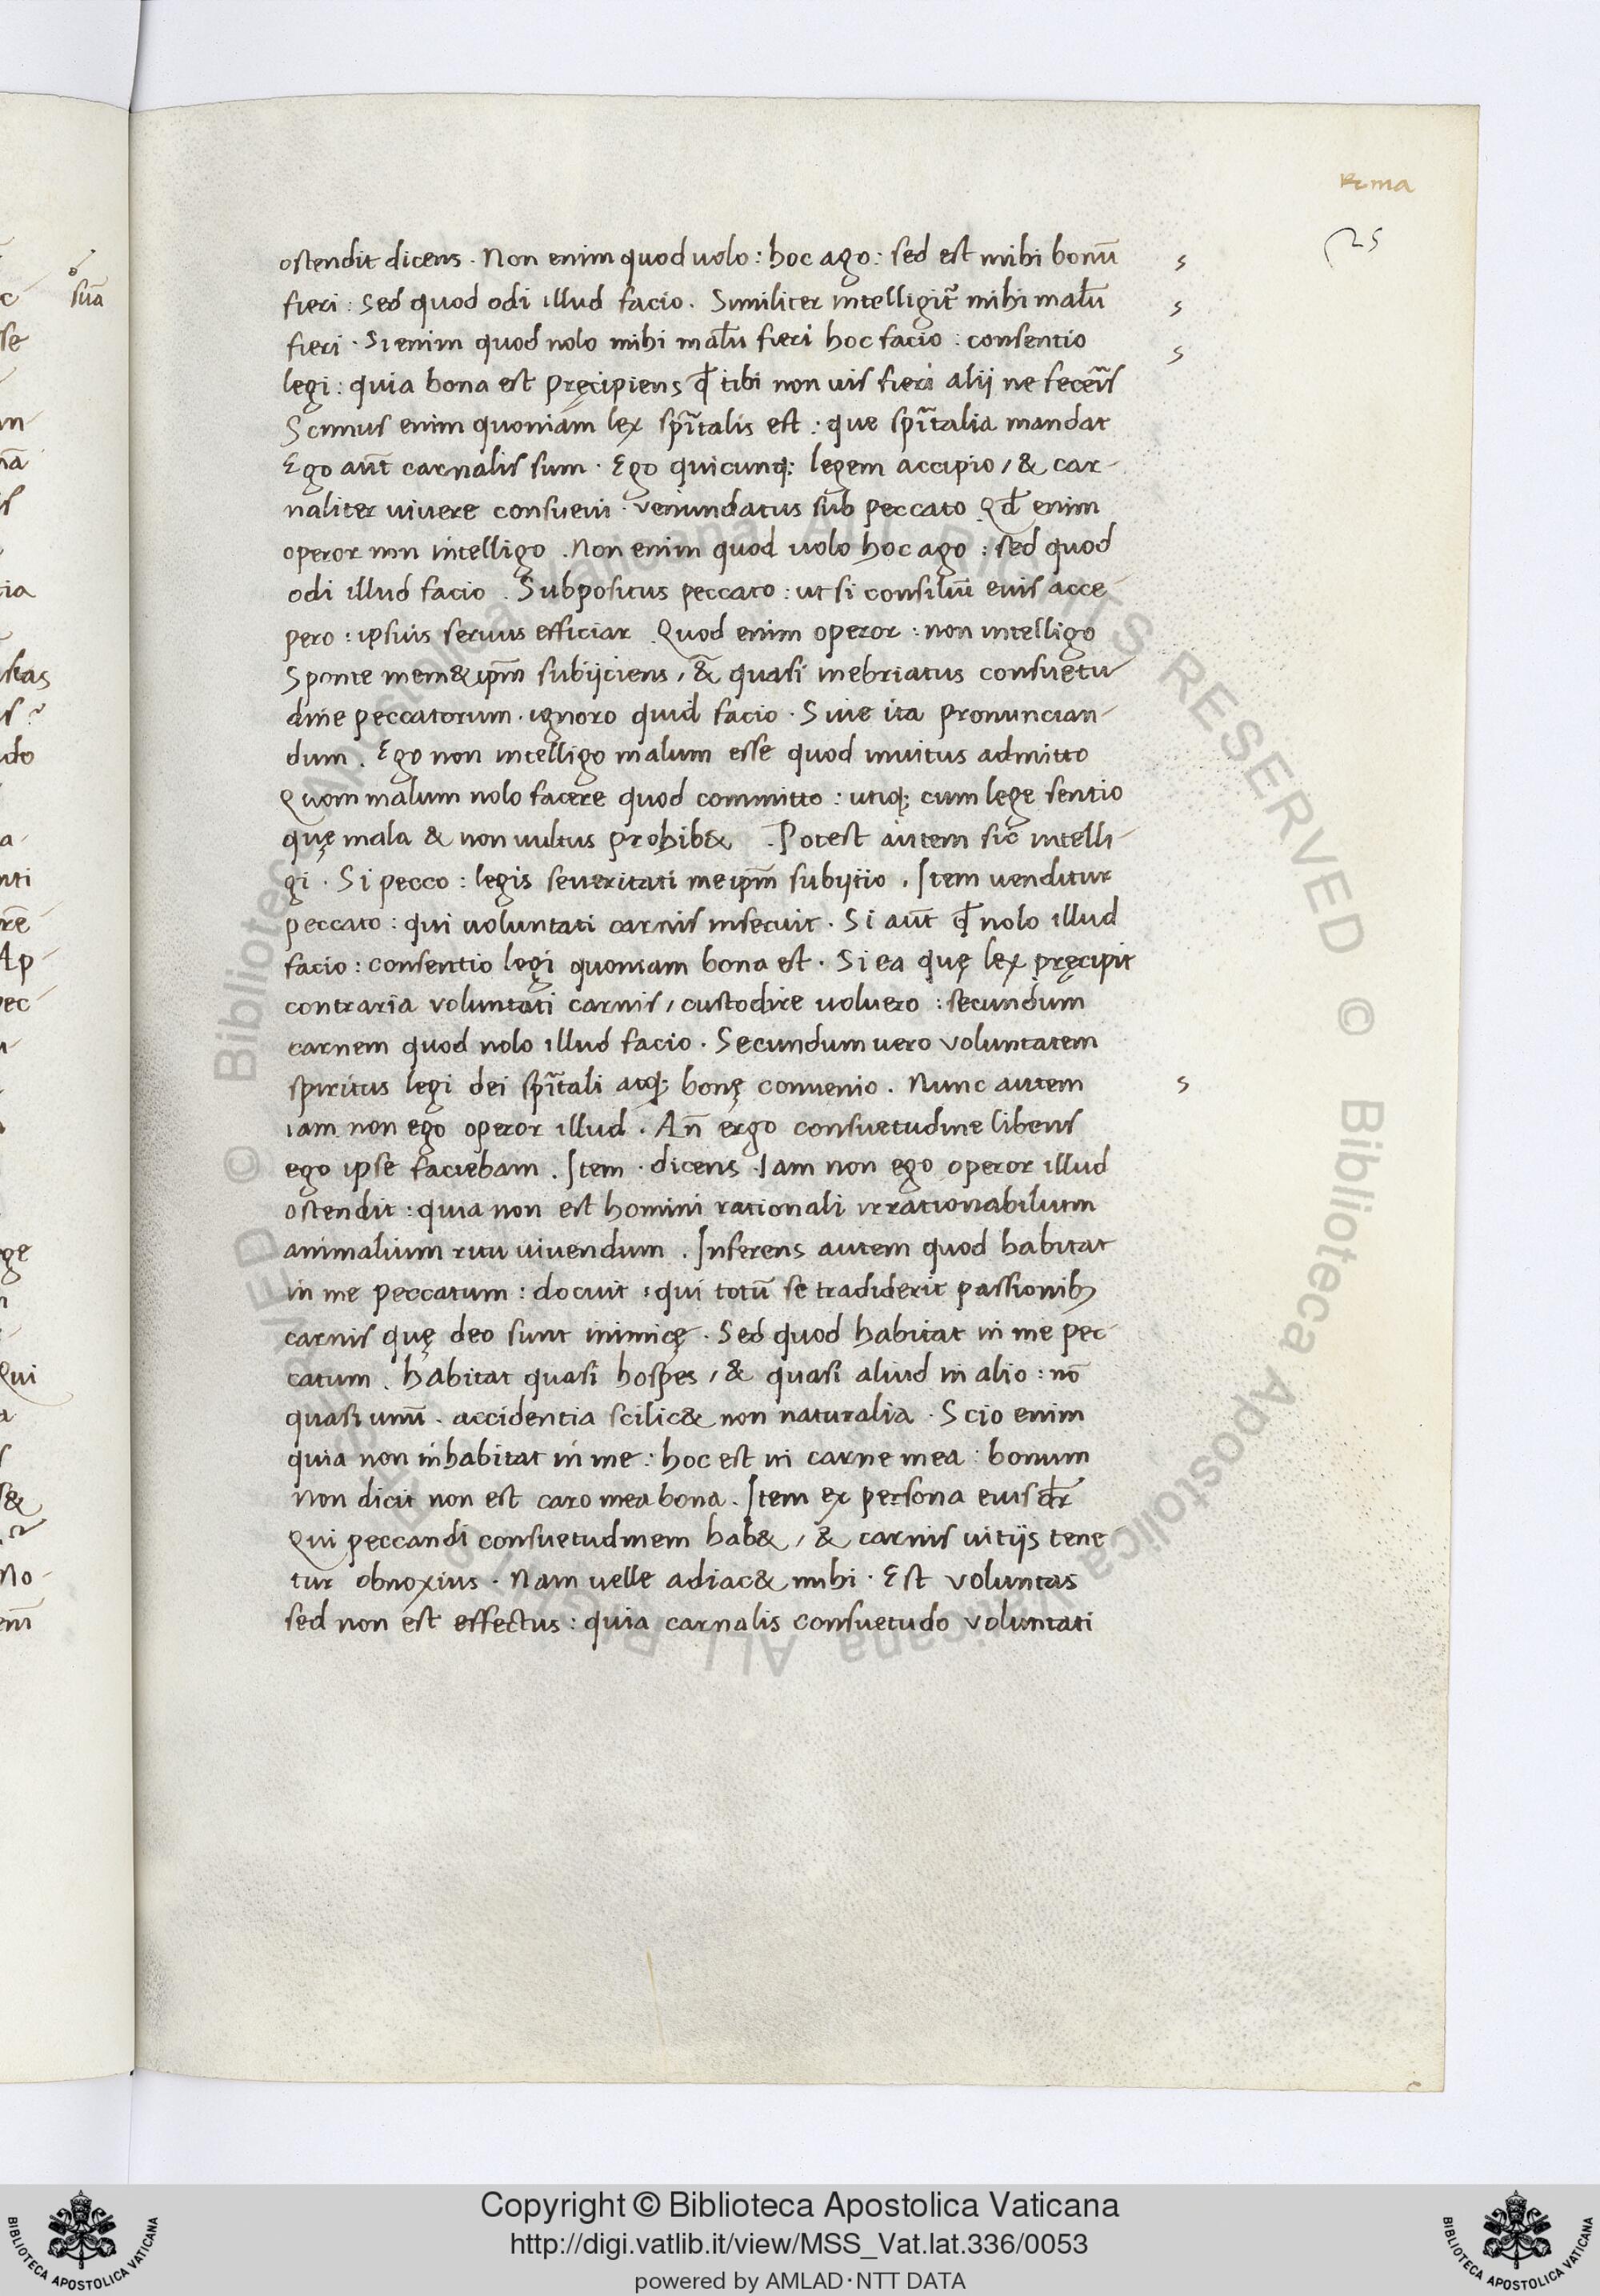 Roma
25
ostendit dicens . Non enim quod uolo : hoc ago : sed est mihi bonū
fieri : sed quod odi illud facio . Similiter intelligit᷑ mihi malū
fieri . Si enim quod nolo mihi malū fieri hoc facio : consentio
legi : quia bona est pręcipiens qđ tibi non uis fieri alij ne feceris
Scimus enim quoniam lex spi͂talis est : que spi͂talia mandat
Ego aut̄ carnalis sum . Ego quicunq; legem accipio / & car-
naliter uiuere consueui . venundatus sub peccato . Qđ enim
operor non intelligo . Non enim quod uolo hoc ago : sed quod
odi illud facio . Subpositus peccato : ut si consiliū eius acce-
pero : ipsius seruus efficiar . Quod enim operor : non intelligo
Sponte mem&ip̄m subijciens , & quasi inebriatus consuetu-
dine peccatorum . ignoro quid facio . Siue ita pronuncian-
dum . Ego non intelligo malum esse quod inuitus admitto
Quom malum nolo facere quod committo : utiq; cum lege sentio
quę mala & non uultus prohib& . Potest autem sic intelli-
gi . Si pecco : legis seueritati meip̄m subijtio . Item uenditur
peccato : qui voluntati carnis insecuit . Si aut̄ qđ nolo illud
facio : consentio legi quoniam bona est . Si ea quę lex pręcipit
contraria voluntati carnis , custodire voluero : secundum
carnem quod nolo illud facio . Secundum uero voluntatem
spiritus legi dei spi͂tali atq; bonę conuenio . Nunc autem
iam non ego operor illud . An̄ ergo consuetudine libens
ego ipse faciebam . Item . dicens . Iam non ego operor illud
ostendit : quia non est homini rationali irrationabilium
animalium ritu uiuendum . Inferens autem quod habitat
in me peccatum : docuit : qui totū se tradiderit passionib;
carnis quę deo sunt inimicę . Sed quod habitat in me pec-
catum . habitat quasi hospes , & quasi aliud in alio : nō
quasi unū . accidentia scilic& non naturalia . Scio enim
quia non inhabitat in me : hoc est in carne mea : bonum
Non dicit non est caro mea bona . Item ex persona eius dr̄
Qui peccandi consuetudinem hab& , & carnis uitijs tene-
tur obnoxius . Nam uelle adiac& mihi . Est voluntas
sed non est effectus : quia carnalis consuetudo voluntati
sūa
Copyright © Biblioteca Apostolica Vaticana
http://digi.vatlib.it/view/MSS_Vat.lat.336/0053
powered by AMLAD·NTT DATA